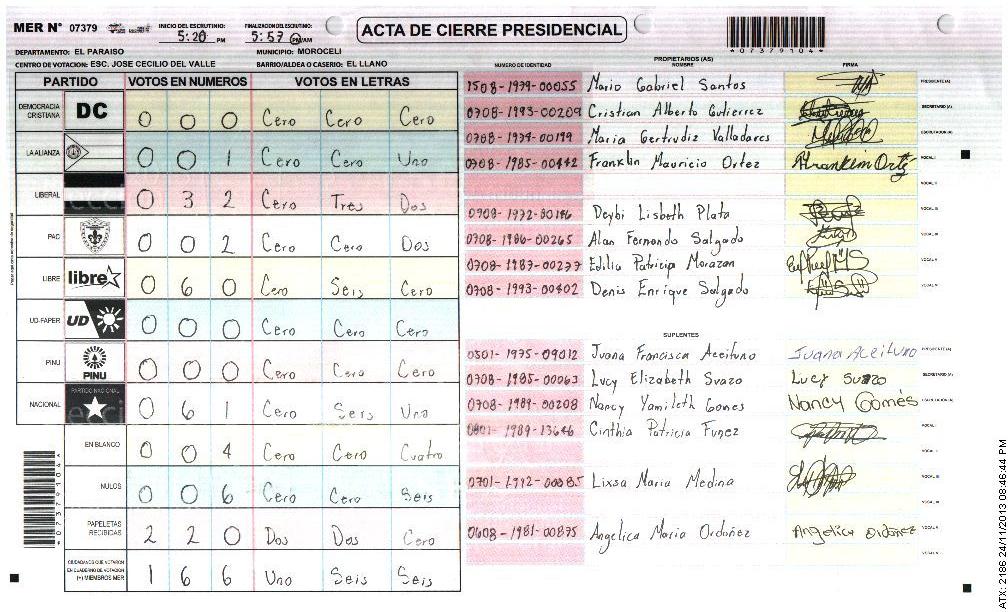 MER N° 07379
INICIO DEL ESCRUTINIO: 5:20 PM
FINALIZACION DEL ESCRUTINIO: 5:57 PM/AM
ACTA DE CIERRE PRESIDENCIAL
07379104
DEPARTAMENTO: EL PARAISO MUNICIPIO: MOROCELI
CENTRO DE VOTACION: ESC. JOSE CECILIO DEL VALLE BARRIO/ALDEA O CASERIO: EL LLANO
PARTIDO VOTOS EN NUMEROS VOTOS EN LETRAS
DEMOCRACIA CRISTIANA DC 0 0 0 Cero Cero Cero
LA ALIANZA 0 0 1 Cero Cero Uno
LIBERAL 0 3 2 Cero Tres Dos
PAC 0 0 2 Cero Cero Dos
LIBRE libre 0 6 0 Cero Seis Cero
UD-FAPER UD 0 0 0 Cero Cero Cero
PINU PINU 0 0 0 Cero Cero Cero
NACIONAL PARTIDO NACIONAL 0 6 1 Cero Seis Uno
EN BLANCO 0 0 4 Cero Cero Cuatro
NULOS 0 0 6 Cero Cero Seis
PAPELETAS RECIBIDAS 2 2 0 Dos Dos Cero
CIUDADANOS QUE VOTARON EN CUADERNO DE VOTACION (+) MIEMBROS MER 1 6 6 Uno Seis Seis
07379104
PROPIETARIOS (AS)
NUMERO DE IDENTIDAD NOMBRE FIRMA
1508-1979-00055 Mario Gabriel Santos PRESIDENTE (A)
0708-1993-00209 Cristian Alberto Gutierrez SECRETARIO (A)
0708-1974-00199 Maria Gertrudiz Valladares ESCRUTADOR (A)
0708-1985-00442 Franklin Mauricio Ortez Franklin Ortez VOCAL I
VOCAL II
Deybi Lisbeth Plata VOCAL III
0708-1986-00265 Alan Fernando Salgado
0708-1987-00277 Edilia Patricia Morazan VOCAL V
0708-1993-00402 Denis Enrique Salgado
SUPLENTES
0501-1975-09012 Juana Francisca Aceituno Juana Aceituno PRESIDENTE (A)
0708-1985-00063 Lucy Elizabeth Suazo Lucy Suazo SECRETARIO (A)
0708-1989-00208 Nancy Yamileth Gomes Nancy Gomés ESCRUTADOR (A)
0801-1989-13646 Cinthia Patricia Funez VOCAL I
VOCAL II
0701-1992-00085 Lixsa Maria Medina VOCAL III
0608-1981-00875 Angelica Maria Ordoñez Angelica Ordoñez VOCAL V
ATX: 2186 24/11/2013 08:46:44 PM